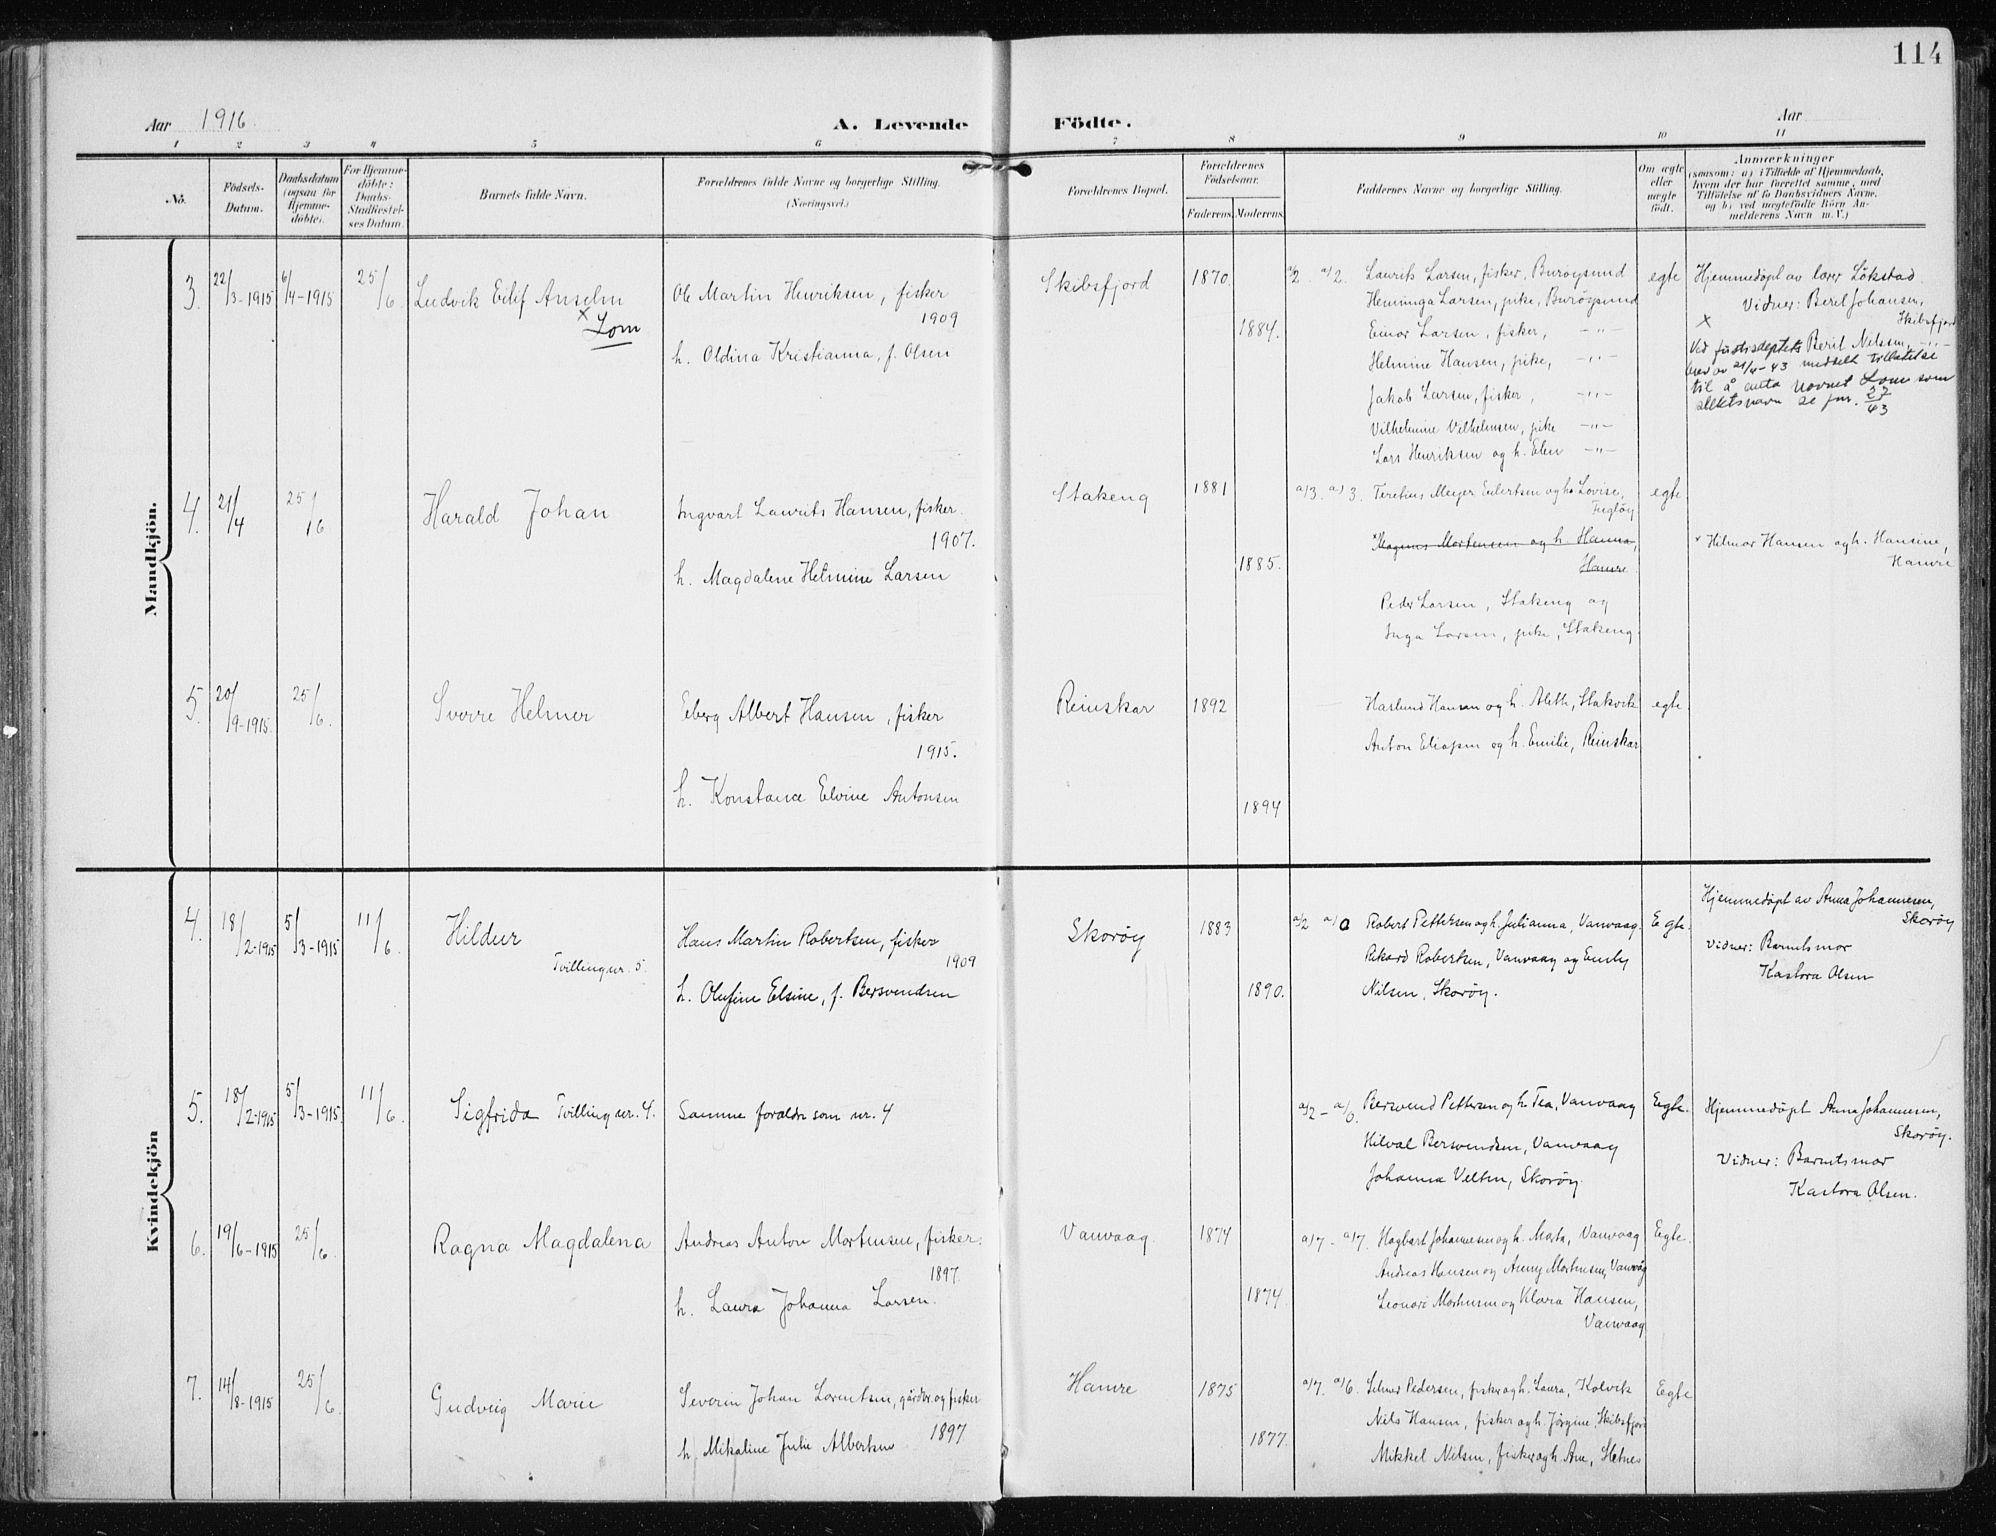 114
Aar 1916
A. Levende Födte.
Aar
1 2 3 4 5 6 7 8 9 10 11
No.
Födsels-
Datum.
Daabsdatum
(ogsaa for
Hjemme-
döbte).
For Hjemme-
döbte:
Daabs-
Stadfæstel-
ses Datum.
Barnets fulde Navn.
Forældrenes fulde Navne og borgerlige Stilling.
(Næringsvei.)
Forældrenes Bopæl.
Forældrenes
Födselsaar.
Faderens. Moderens.
Faddernes Navne og borgerlige Stilling.
Om ægte
eller
uægte
födt.
Anmærkninger
(saasom: a) i Tilfælde af Hjemmedaab,
hvem der har forrettet samme, med
Tilföielse af to Daabsvidners Navne,
og b) ved uægtefödte Börn An-
melderens Navn m. V.)
Mandkjön.
3. 22/3-1915 6/4-1915 25/6
Ludvik Eilif Anselm
x Lom
Ole Martin Henriksen, fisker
1909
h. Oldina Kristianna, f. Olsen
Skibsfjord
1870.
1884.
a/2. a/2. Laurits Larsen, fisker, Burøysund
Heminga Larsen, pike, Burøysund
Einar Larsen, fisker, -"-
Helmine Hansen, pike, -"-
Jakob Larsen, fisker, -"-
Vilhelmine Vilhelmsen, pike -"-
Lars Henriksen og h. Elen -"-
egte
Hjemmedøpt av lærer Løkstad.
Vidner: Berel Johansen,
Skibsfjord
Berit Nilsen, -"-
x Ved justisdeptets
brev av 21/4-43 meddelt tillatelse
til å anta navnet Lom som
slektsnavn se jnr. 27/43
4. 21/4 25/6
Harald Johan
Ingvart Laurits Hansen, fisker.
1907.
h. Magdalene Helmine Larsen
Stakeng
1881
1885.
a/3. a/3. Teretius Meyer Eilertsen og h. Lovise,
Fugløy
x Magnus Mortensen og h. Hanna,
Hamre
Peder Larsen, Stakeng og
Inga Larsen, pike, Stakeng.
egte
x Hilmar Hansen og h. Hansine,
Hamre
5. 20/9-1915 25/6.
Sverre Helmer
Eberg Albert Hansen, fisker
1915.
h. Konstance Elvine Antonsen
Reinskar
1892
1894
Haslund Hansen og h. Aleth, Stakvik
Anton Eliasen og h. Emilie, Reinskar
egte
Kvindekjön
4. 18/2-1915 5/3-1915 11/6
Hildur
Tvilling nr. 5.
Hans Martin Robertsen, fisker
1909
h. Olufine Elsine, f. Bersvendsen
Skorøy
1883
1890.
a/2 a/0 Robert Pettersen og h. Julianna, Vanvaag.
Rikard Robertsen, Vanvaag og Emily
Nilsen, Skorøy.
Egte.
Hjemmedøpt av Anna Johannesen,
Skorøy
Vidner: Barnets mor
Kastora Olsen
5. 18/2-1915 5/3-1915. 11/6.
Sigfrida Tvilling nr. 4.
Samme foraldre som nr. 4
a/2 - a/0. Bersvend Pettersen og h. Tea, Vanvaag
Hilval Bersvendsen, Vanvaag
Johanna Veltin, Skorøy.
Egte.
Hjemmedøpt Anna Johannesen,
Skorøy.
Vidner: Barnets mor
Kastora Olsen.
6. 19/6-1915 25/6.
Ragna Magdalena
Andreas Anton Mortensen, fisker.
1897.
h. Laura Johanna Larsen.
Vanvaag.
1874
1874.
a/7 - a/7. Hagbart Johannesen og h. Marta, Vanvaag
Andreas Hansen og Anny Mortensen, Vanvåg
Leonard Mortensen og Klara Hansen,
Vanvaag
Egte.
7. 14/8-1915 25/6.
Gudveig Marie
Severin Johan Lorentsen, gårdbr. og fisker
1897
h. Mikaline Julie Albertsen
Hamre
1875
1877.
a/7. a/6. Selmer Pedersen, fisker og h. Laura, Kolvik
Nils Hansen, fisker og h. Jørgine, Skibsfjord
Mikkel Nilsen, fisker og h. Ane, Helnes
Egte